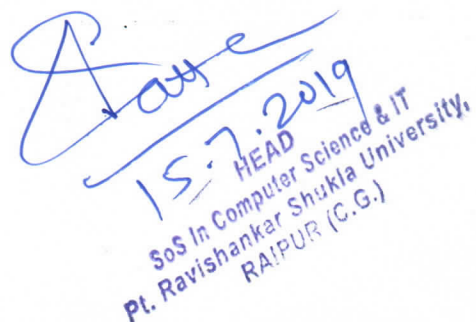 15.7.2019
HEAD
SoS In Computer Science & IT
Pt. Ravishankar Shukla University,
RAIPUR (C.G.)